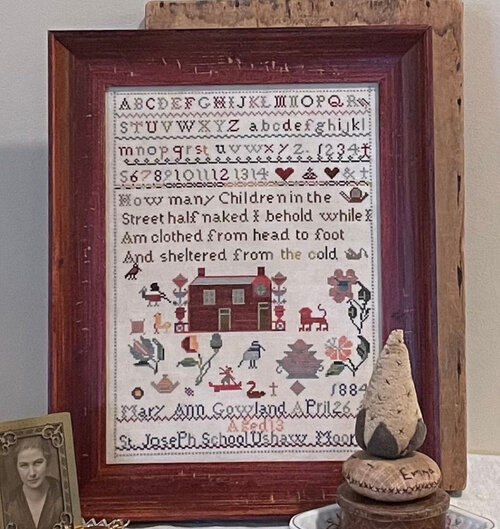 ABCDEFGHIJKLMNOPQR
STUVWXYZ abcdefghijkl
mnopqrstuvwxyz. 1234
567891011121314 &
How many Children in the
Street half naked I behold while I
Am clothed from head to foot
And sheltered from the cold
1884
Mary Ann Gowland April 26
Aged 13
St. Joseph School Ushaw Moor